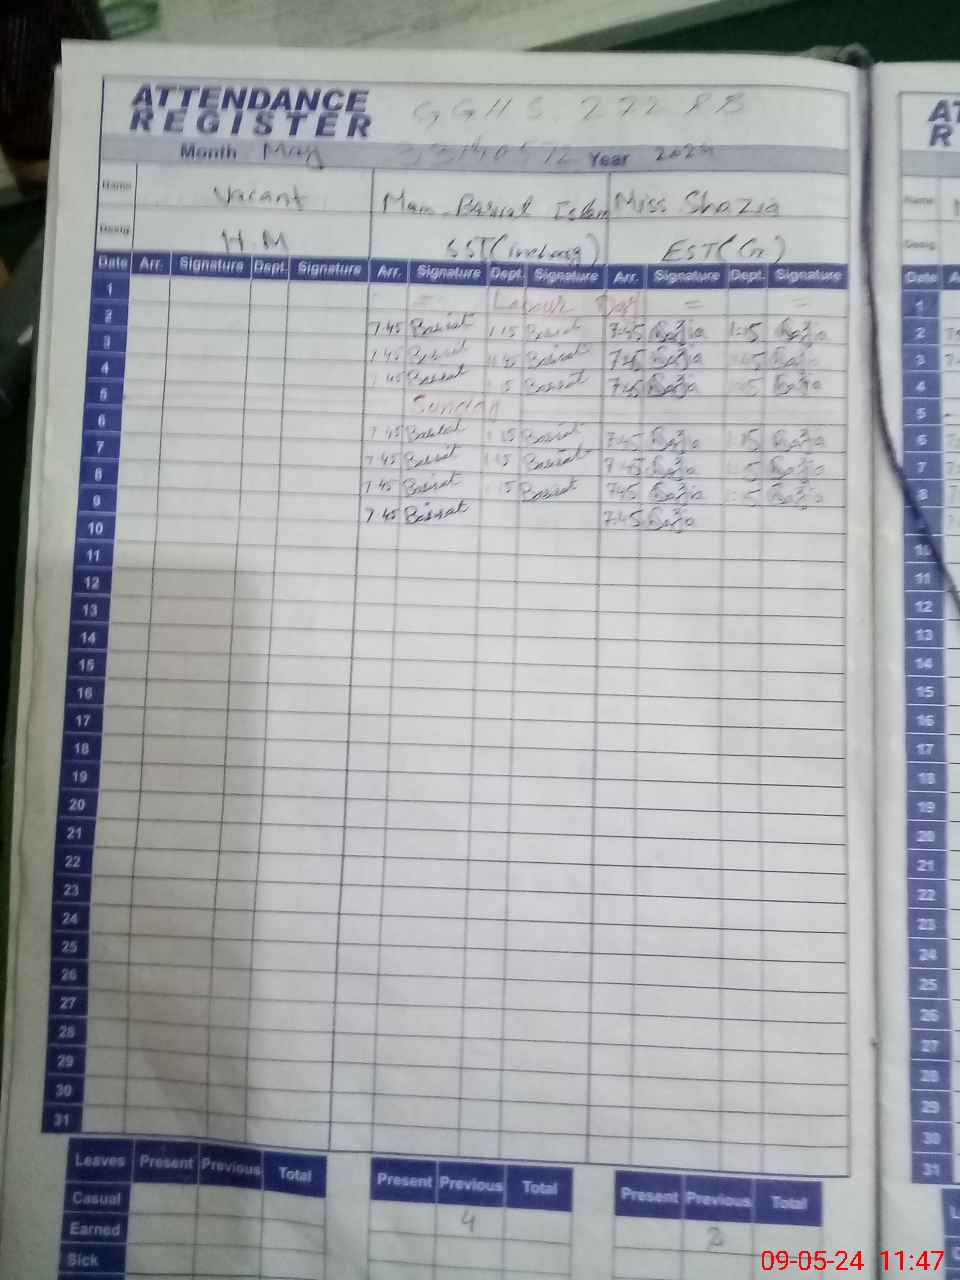 ATTENDANCE REGISTER GGHS 272 RB
Month May 33140572 Year 2024
Name Vacant Mam Basirat Islam Miss Shazia
Desig. H.M SST(incharg) EST(
Date Arr. Signature Dept. Signature Arr. Signature Dept. Signature Arr. Signature Dept. Signature
1 = Labour Day = =
2 7:45 Basirat 1:15 Basirat 7:45 1:15
3 7:45 Basirat Basirat 7:45
4 7:45 Basirat 1:15 Basirat 7:45 1:15
5 Sunday
6 7:45 Basirat 1:15 Basirat 7:45 1:15
7 7:45 Basirat 1:15 Basirat 7:45 1:15
8 7:45 Basirat 1:15 Basirat 7:45 1:15
9 7:45 Basirat 7:45
10
11
12
13
14
15
16
17
18
19
20
21
22
23
24
25
26
27
28
29
30
31
Leaves Present Previous Total Present Previous Total Present Previous Total
Casual
Earned 4 2
Sick
AT
R
Date
1
2
3
4
5
6
7
8
10
11
12
13
14
15
16
17
18
19
20
21
22
23
24
25
26
27
28
29
30
31
09-05-24 11:47